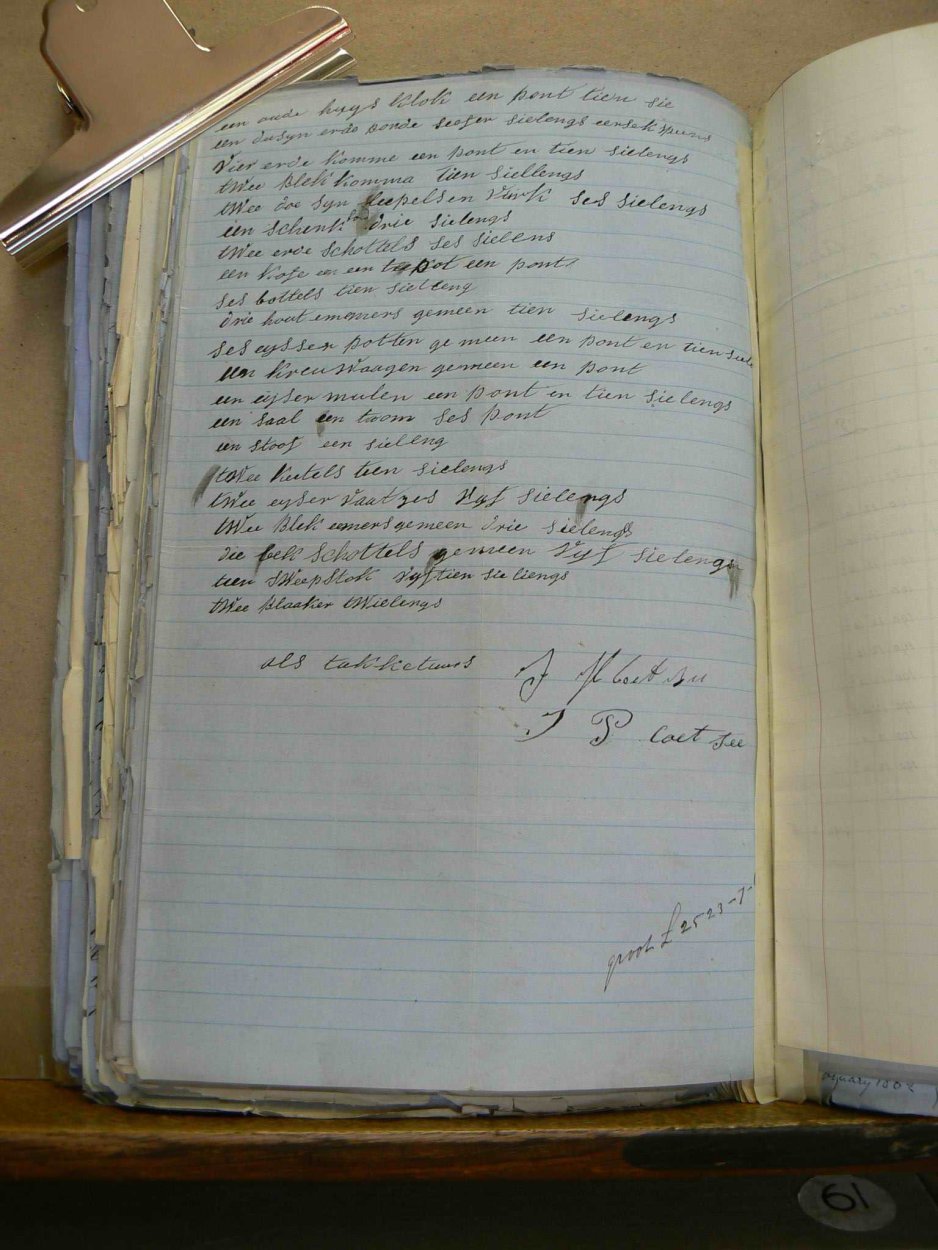 een oude huys klok een pont tien sie
een dosyn erde borde seeser sielengs eersekspuns
Vier erde komme een pont en tien sielengs
twee blek komma tien siellengs
twee doe syn leepelsen Vurk ses sielengs
een schenk drie sielengs
twee erde schottels ses sielens
een kofe en een tepot een pont
ses bottels tien sielleng
drie hout emmers gemeen tien sielengs
ses eysser potten gemeen een pont en tien siele
een kreuwaagen gemeen een pont
een eyser mulen een pont en tien sielengs
een saal een toom ses pont
een stoof een sielleng
twee ketels tien sielengs
twee eyser vaatyes Vyf sielengs
twee blek eemers gemeen drie sielengs
die bek schottels gemeen Vyf sielengs
tien sweepstok Vyftien sieliengs
twee blaaker twielengs
als takketuurs
J H Coet see
J P Coet see
groot £ 2523-7-
61